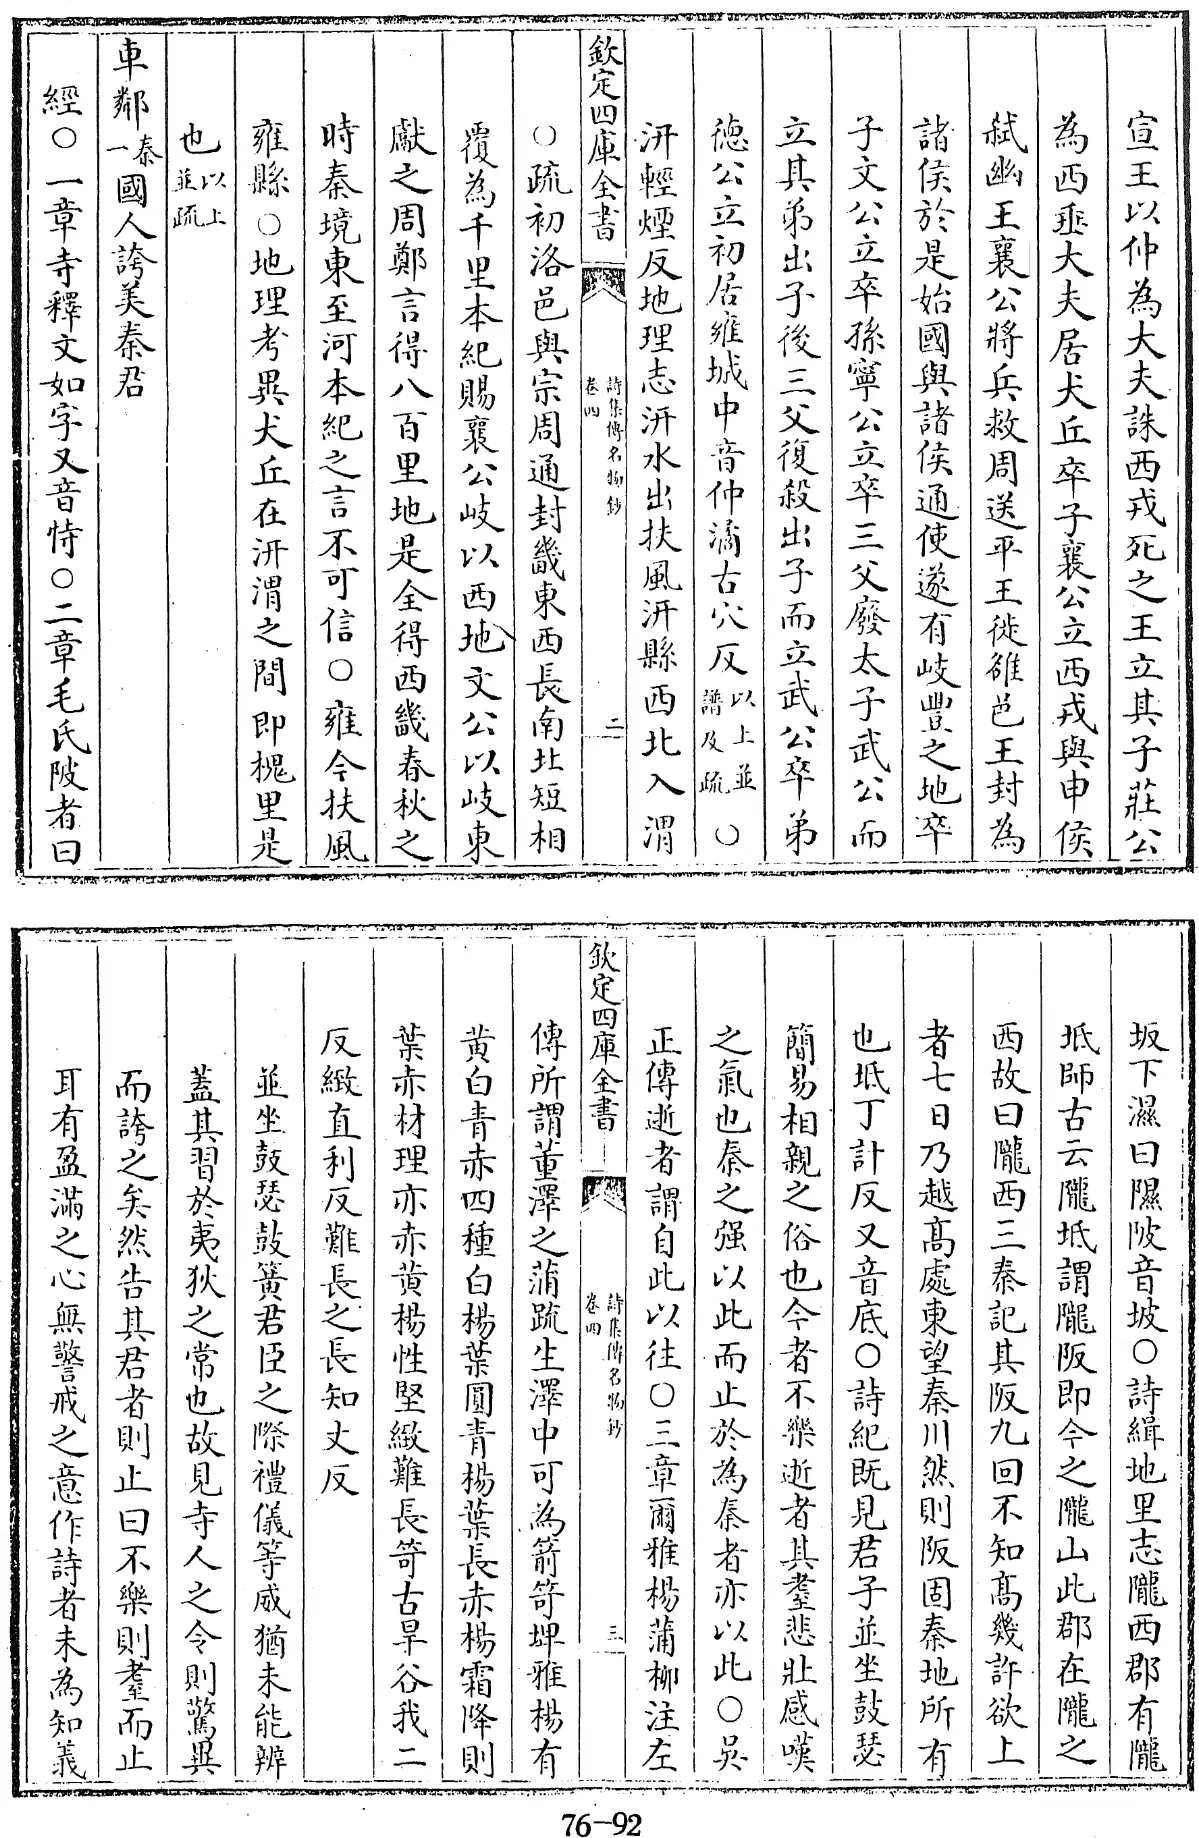 宣王以仲為大夫誅西戎死之王立其子莊公
為西垂大夫居犬丘卒子襄公立西戎與申侯
弑幽王襄公將兵救周送平王徙雒邑王封為
諸侯於是始國與諸侯通使遂有岐豐之地卒
子文公立卒孫寧公立卒三父廢太子武公而
立其弟出子後三父復殺出子而立武公卒弟
德公立初居雍城中音仲潏古穴反以上並譜及疏○
汧輕煙反地理志汧水出扶風汧縣西北入渭
欽定四庫全書
詩集傳名物鈔
卷四
二
○疏初洛邑與宗周通封畿東西長南北短相
覆為千里本紀賜襄公岐以西地文公以岐東
獻之周鄭言得八百里地是全得西畿春秋之
時秦境東至河本紀之言不可信○雍今扶風
雍縣○地理考異犬丘在汧渭之間即槐里是
也以上並疏
車鄰秦一國人誇美秦君
經○一章寺釋文如字又音恃○二章毛氏陂者曰
坂下濕曰隰陂音坡○詩緝地里志隴西郡有隴
坻師古云隴坻謂隴阪即今之隴山此郡在隴之
西故曰隴西三秦記其阪九回不知高幾許欲上
者七日乃越高處東望秦川然則阪固秦地所有
也坻丁計反又音底○詩紀既見君子並坐鼓瑟
簡易相親之俗也今者不樂逝者其耋悲壯感嘆
之氣也秦之强以此而止於為秦者亦以此○吳
正傳逝者謂自此以往○三章爾雅楊蒲柳注左
欽定四庫全書
詩集傳名物鈔
卷四
三
傳所謂董澤之蒲疏生澤中可為箭笴埤雅楊有
黄白青赤四種白楊葉圓青楊葉長赤楊霜降則
葉赤材理亦赤黄楊性堅緻難長笴古旱谷我二
反緻直利反難長之長知丈反
並坐鼓瑟鼓簧君臣之際禮儀等威猶未能辨
蓋其習於夷狄之常也故見寺人之令則驚異
而誇之矣然告其君者則止曰不樂則耋而止
耳有盈滿之心無警戒之意作詩者未為知義
76-92